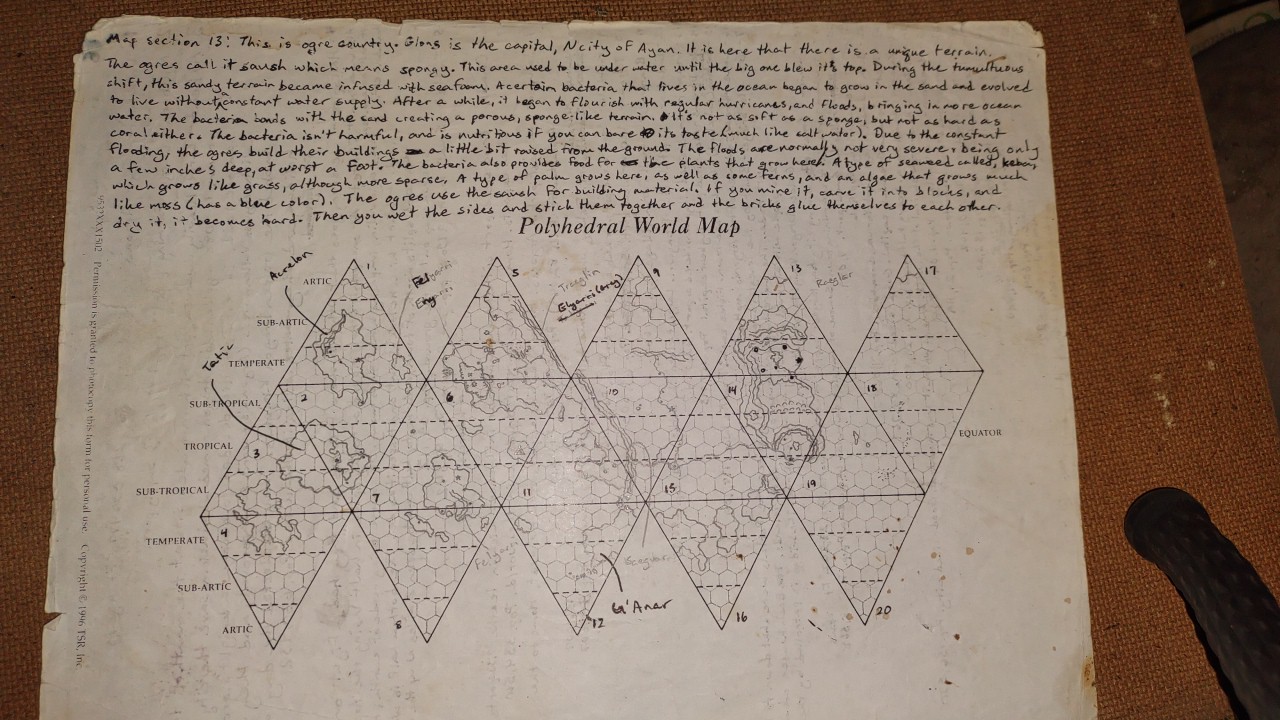 Map section 13: This is ogre country. Glons is the capital, N city of Ayan. It is here that there is a unique terrain.
The ogres call it saush which means spongy. This area used to be under water until the big one blew it's top. During the tumultuous
shift, this sandy terrain became infused with seafoam. A certain bacteria that lives in the ocean began to grow in the sand and evolved
to live without constant water supply. After a while, it began to flourish with regular hurricanes, and floods, bringing in more ocean
water. The bacteria bonds with the sand creating a porous, sponge-like terrain. It's not as soft as a sponge, but not as hard as
coral either. The bacteria isn't harmful, and is nutritious if you can bare its taste (much like salt water). Due to the constant
flooding, the ogres build their buildings a little bit raised from the ground. The floods are normally not very severe, being only
a few inches deep, at worst a foot. The bacteria also provides food for the plants that grow here. A type of seaweed called,
which grows like grass, although more sparse. A type of palm grows here, as well as some ferns, and an algae that grows much
like moss (has a blue color). The ogres use the saush for building material. If you mine it, carve it into blocks, and
dry it, it becomes hard. Then you wet the sides and stick them together and the bricks glue themselves to each other.
Polyhedral World Map
Acrelon
ARTIC
1
5
9
13
17
Elyarri (org)
SUB-ARTIC
Tatic
TEMPERATE
SUB-TROPICAL
2
6
10
14
18
TROPICAL
3
EQUATOR
SUB-TROPICAL
7
11
15
19
TEMPERATE
4
SUB-ARTIC
G'Aner
ARTIC
8
12
16
20
053XXXX1502 Permission is granted to photocopy this form for personal use. Copyright © 1996 TSR, Inc.